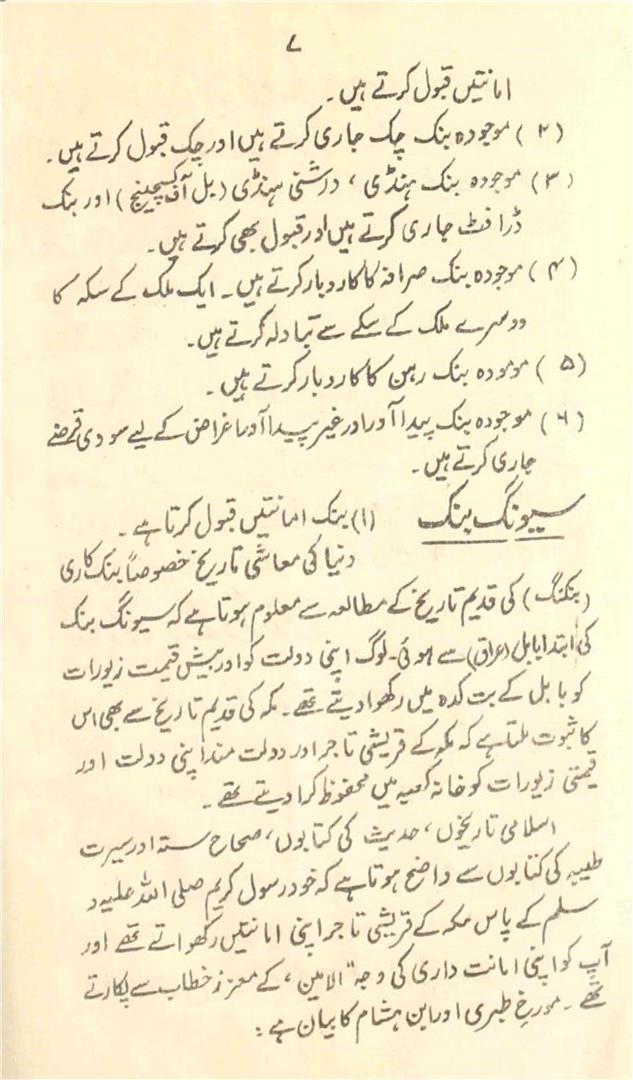 ۷
امانتیں قبول کرتے ہیں۔
(۲) موجودہ بنک چک جاری کرتے ہیں اور چک قبول کرتے ہیں۔
(۳) موجودہ بنک ہنڈی، درشنی ہنڈی (بل آف کسچینج) اور بنک
ڈرافٹ جاری کرتے ہیں اور قبول بھی کرتے ہیں۔
(۴) موجودہ بنک صرافہ کا کاروبار کرتے ہیں۔ ایک ملک کے سکہ کا
دوسرے ملک کے سکے سے تبادلہ کرتے ہیں۔
(۵) موجودہ بنک رہن کا کاروبار کرتے ہیں۔
(۶) موجودہ بنک پیدا آور اور غیر پیدا آور اغراض کے لیے سودی قرضے
جاری کرتے ہیں۔
سیونگ بنک (۱) بنک امانتیں قبول کرتا ہے۔
دنیا کی معاشی تاریخ خصوصاً بنک کاری
(بنکنگ) کی قدیم تاریخ کے مطالعہ سے معلوم ہوتا ہے کہ سیونگ بنک
کی ابتدا بابل (عراق) سے ہوئی۔ لوگ اپنی دولت کو اور بیش قیمت زیورات
کو بابل کے بت کدہ میں رکھوا دیتے تھے۔ مکہ کی قدیم تاریخ سے بھی اس
کا ثبوت ملتا ہے کہ مکہ کے قریشی تاجر اور دولت مند اپنی دولت اور
قیمتی زیورات کو خانہ کعبہ میں محفوظ کرا دیتے تھے۔
اسلامی تاریخوں، حدیث کی کتابوں، صحاح ستہ اور سیرت
طیبہ کی کتابوں سے واضح ہوتا ہے کہ خود رسول کریم صلی اللہ علیہ و
سلم کے پاس مکہ کے قریشی تاجر اپنی امانتیں رکھواتے تھے اور
آپ کو اپنی امانت داری کی وجہ "الامین، کے معزز خطاب سے پکارتے
تھے۔ مورخ طبری اور ابن ہشام کا بیان ہے: